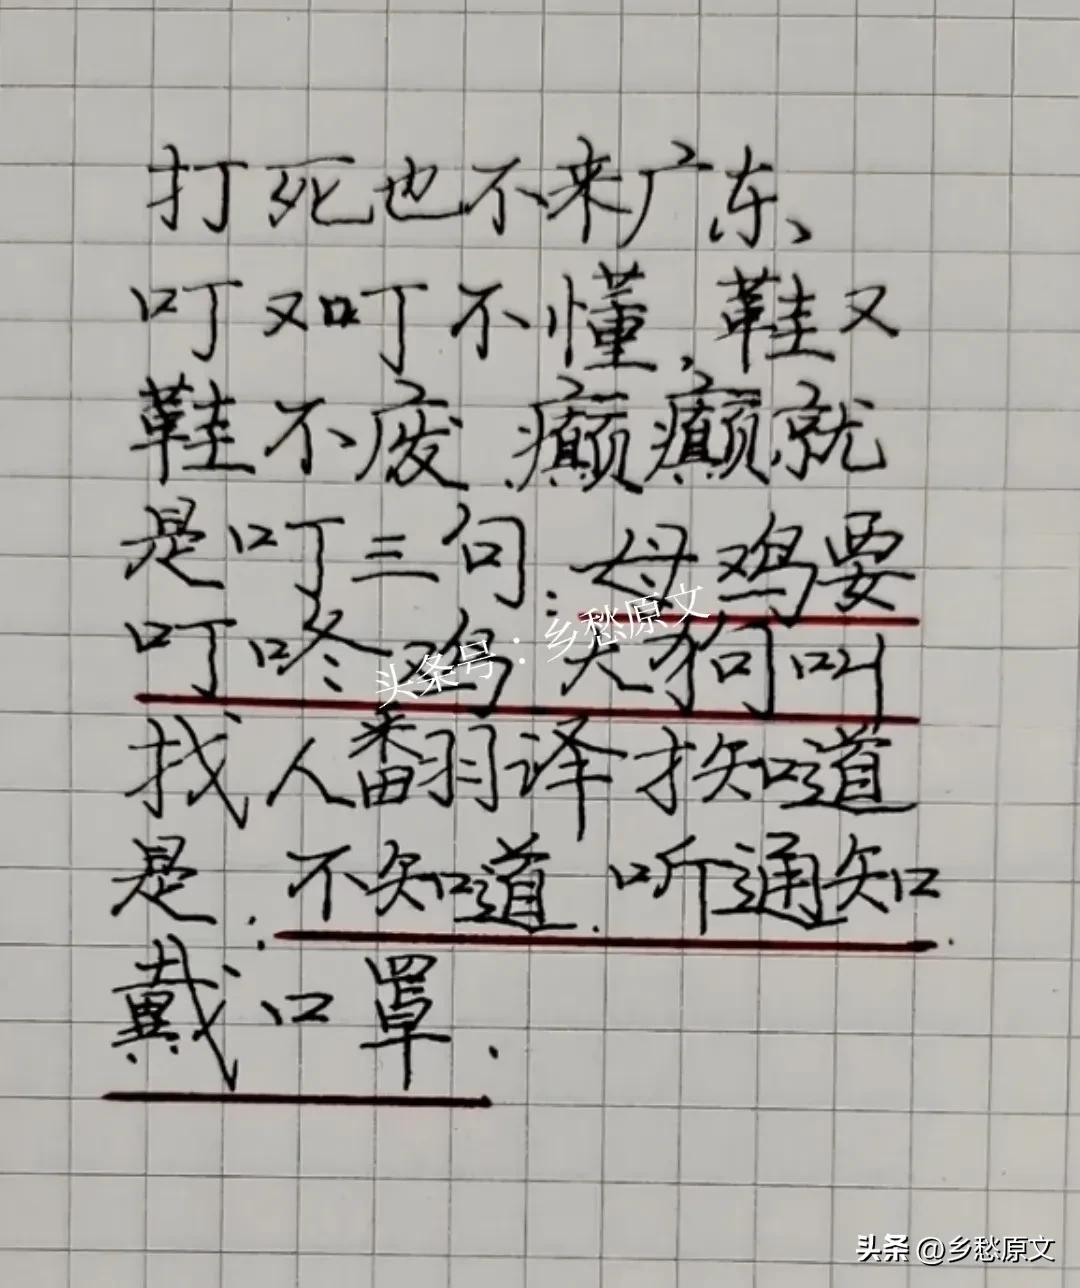 打死也不来广东、
叮又叮不懂,鞋又
鞋不废.癫癫就
是叮三句:母鸡要
叮咚鸡 大狗叫
头条号:乡愁原文
找人翻译才知道
是:不知道.听通知.
戴口罩.
头条 @乡愁原文